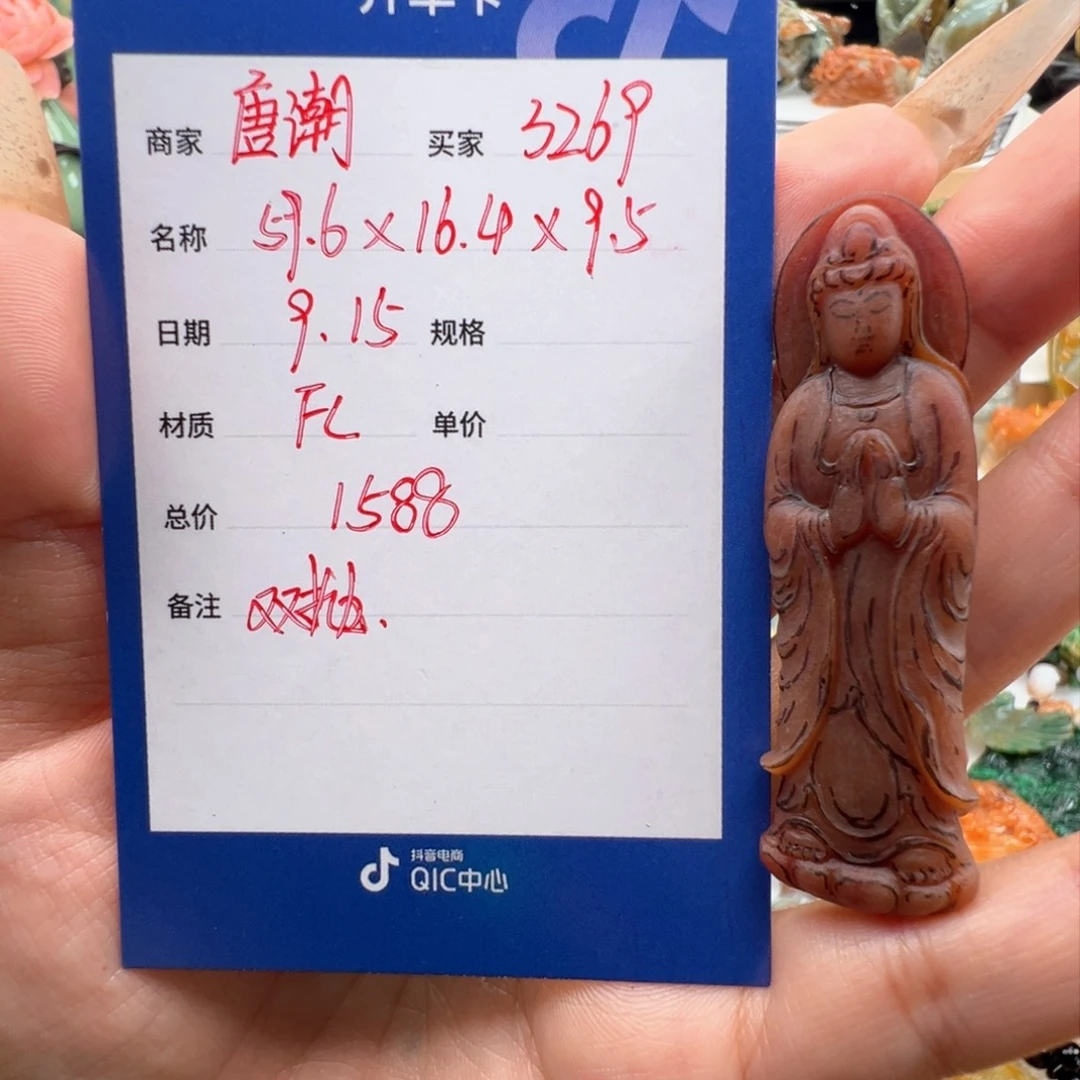 开单卡
商家 唐潮 买家 3269
名称 59.6×16.4×9.5
日期 9.15 规格
材质 FL 单价
总价 1588
备注 双抛.
抖音电商
QIC中心